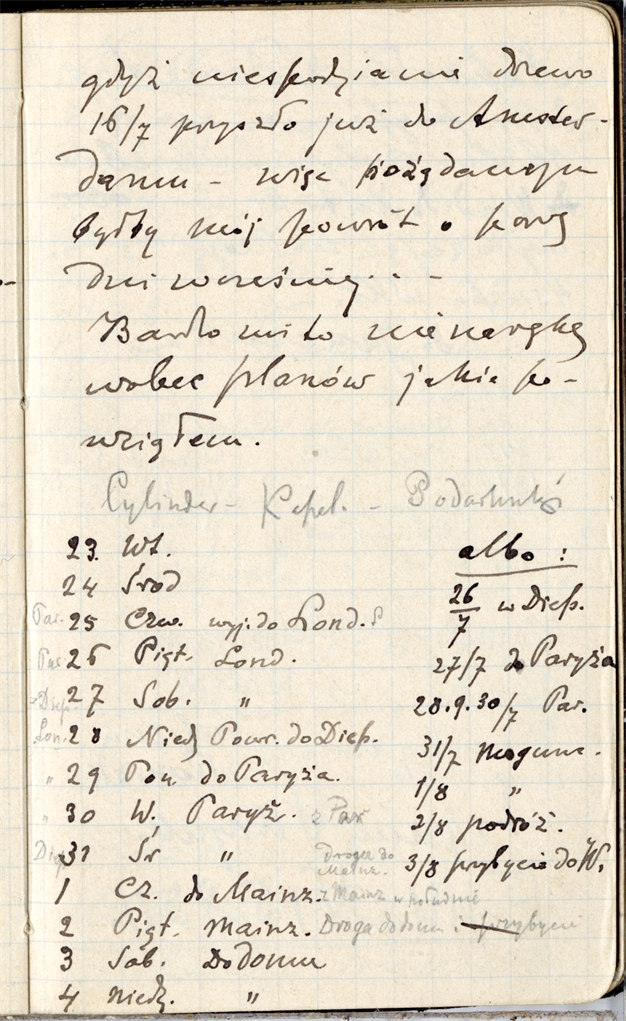 gdyż niespodzianie drzewo
16/7 przyszło już do Amster-
damu - więc pożądanym
byłby mój powrót o parę
dni wcześniej. . -
Bardo mi to nie na rękę
wobec planów jakie po-
wziąłem.
Cylinder - Kapel. - Podarunki
23. Wt.
24 Środ
Par. 25 Czw. wyj. do Lond.?
Par 26 Piąt. Lond.
Diep. 27 Sob. "
Lon. 28 Niedz Powr. do Diep.
" 29 Pon. do Paryża.
" 30 W. Paryż. z Par
31 Śr " Droga do Mainz.
1 Cz. do Mainz. z Mainz w południe
2 Piąt. Mainz. Droga do domu i przybycie
3 Sob. Do domu
4 Niedz. "
albo :
26/7 w Diep.
27/7 do Paryża
28.9.30/7 Par.
31/7 Mogunc.
1/8 "
2/8 podróż.
3/8 przybycie do W.